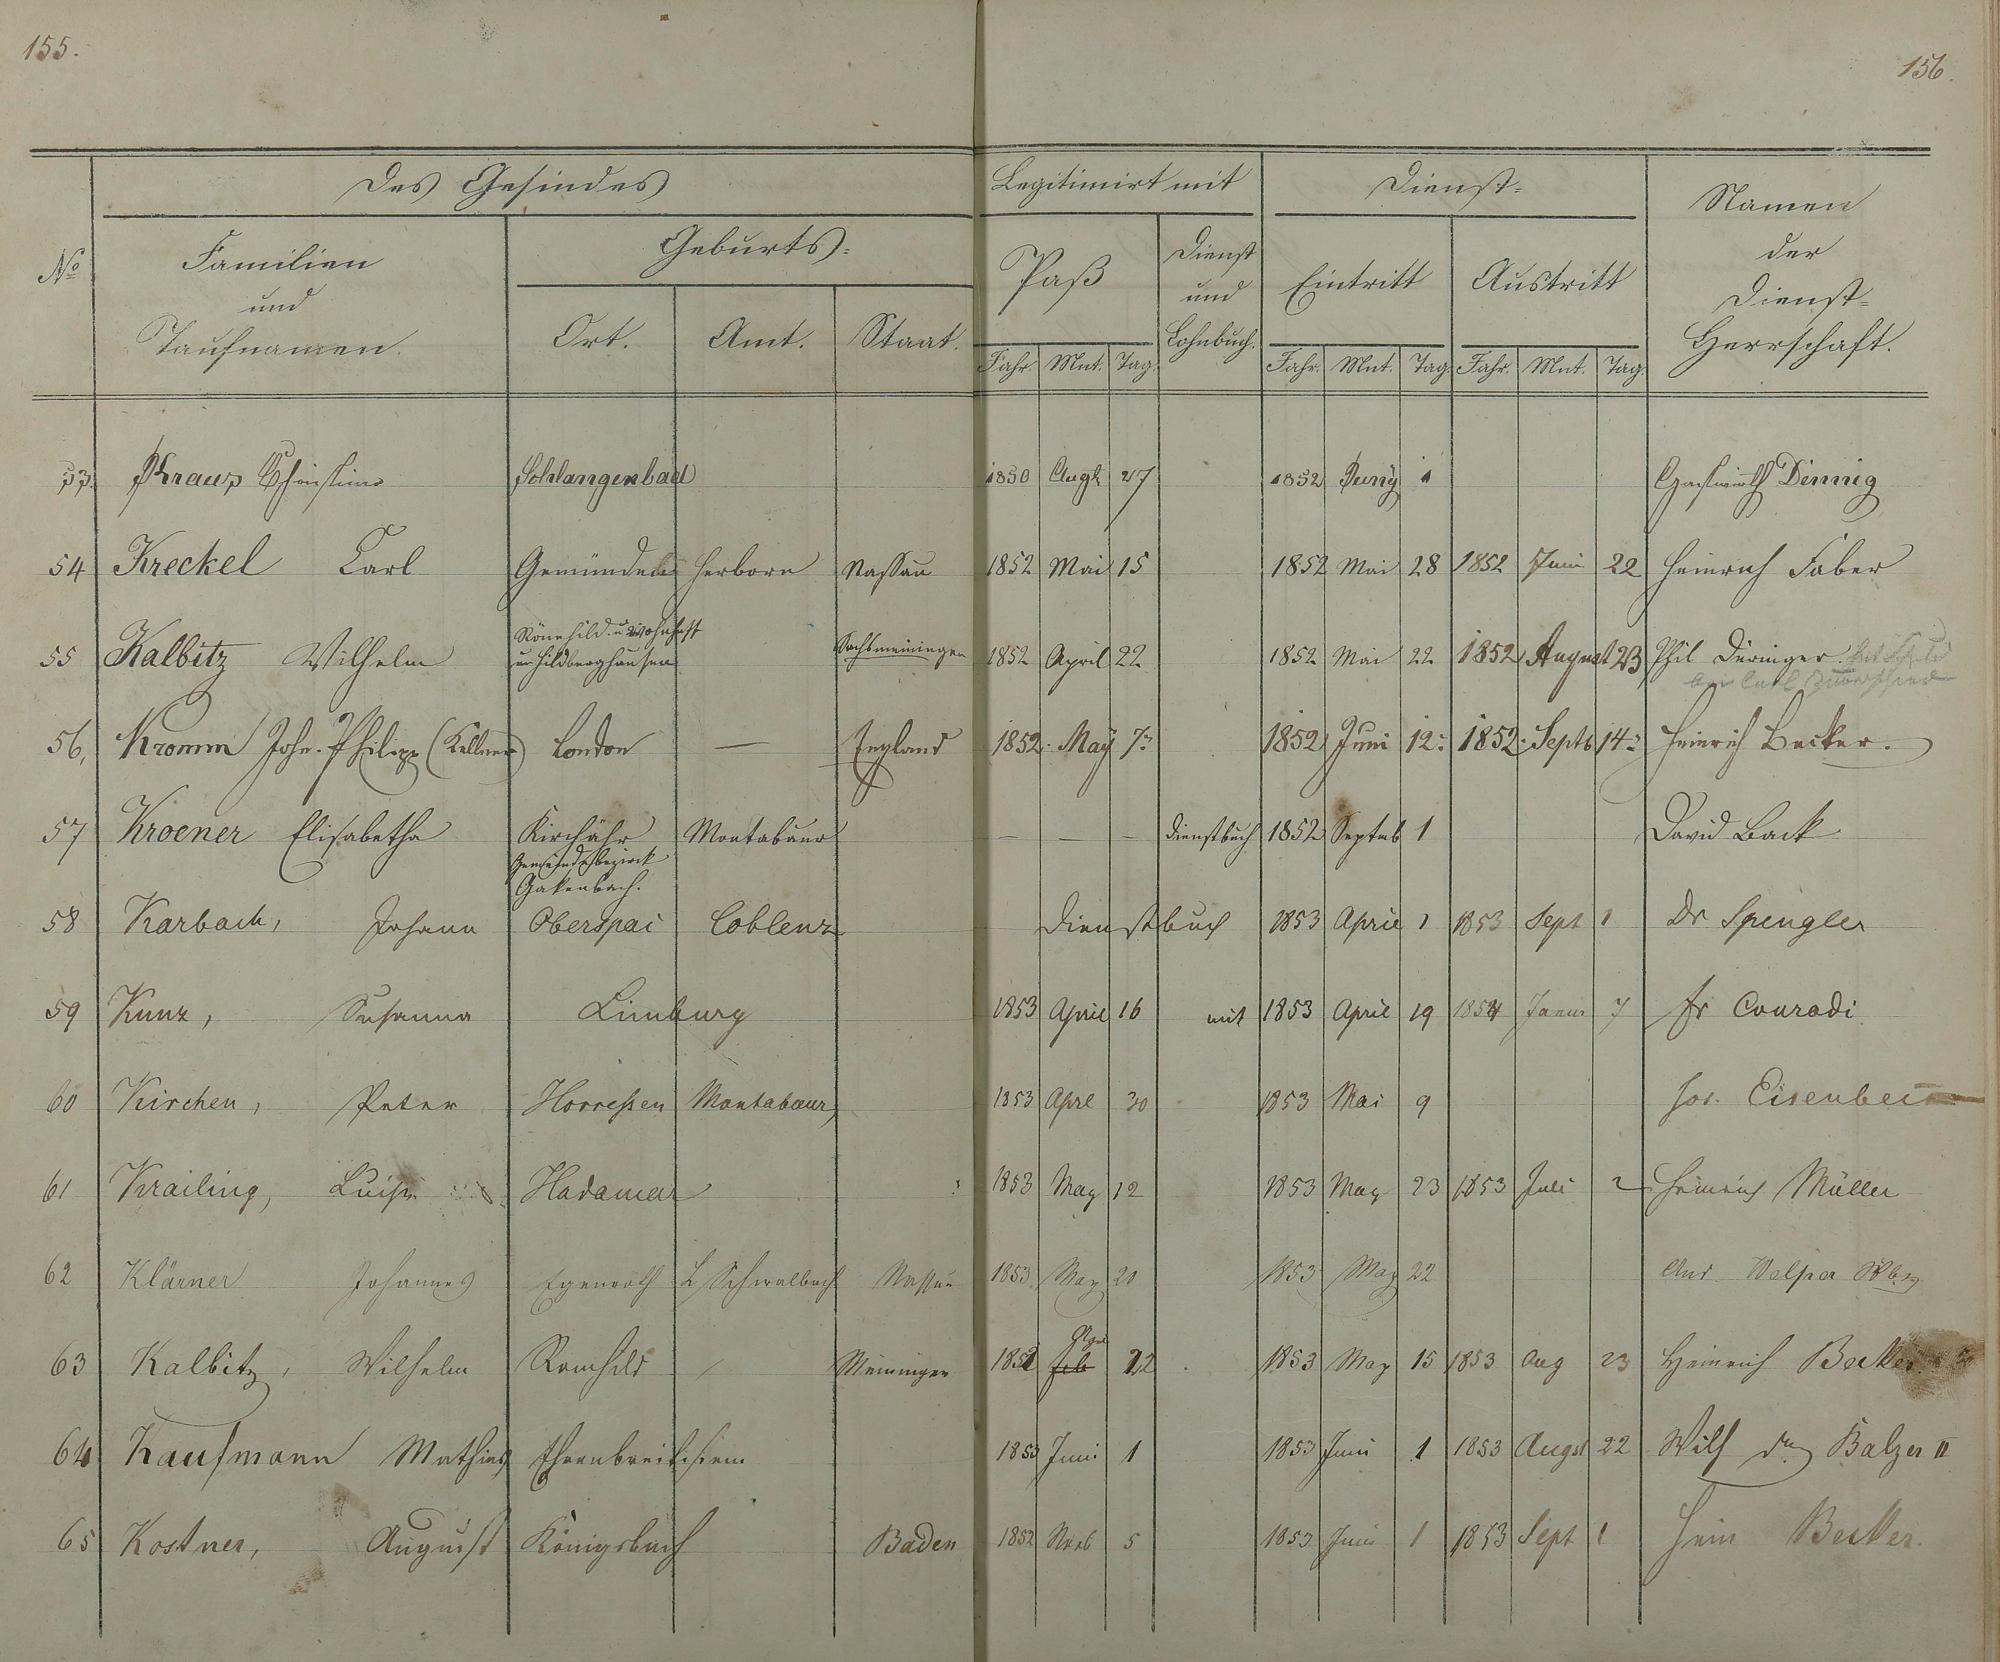 155.
156.
Des Gesindes
Legitimirt mit
Dienst=
Namen
der
Dienst=
Herrschaft.
No
Familien
und
Taufnamen.
Geburts=
Ort.
Amt.
Staat.
Paß
Dienst
und
Lohnbuch.
Eintritt
Austritt
Jahr. Mnt. Tag.
Jahr. Mnt. Tag. Jahr. Mnt. Tag.
53. Kraus Christine Schlangenbad 1850 Augt 27 1852 Juny 1 Gastwirth Dennig
54 Kreckel Carl Gemünden Herborn Nassau 1852 Mai 15 1852 Mai 28 1852 Juni 22 Heinrich Faber
55 Kalbitz Wilhelm Römhild u. wohnhaft
in Hildberghausen Sachsmeiningen 1852 April 22 1852 Mai 22 1852 August 23 Phil Düringer
bei Carl
56, Kromm Joh. Philipp (Kellner) London — England 1852. May 7. 1852 Juni 12. 1852. Septb 14. Heinrich Becker.
57 Kroener Elisabetha Kirchähr
Gemeindebezirck
Gakenbach. Montabaur — — — Dienstbuch 1852 Septeb 1 David Back
58 Karbach, Johann Oberspai Coblenz Dienstbuch 1853 April 1 1853 Sept 1 Dr Spengler
59 Kunz, Susanna Limburg 1853 April 16 mit 1853 April 19 1854 Janur 7 Fr Conradi
60 Kirchen, Peter Horreßen Montabaur 1853 Aprl 30 1853 Mai 9 Jos. Eisenbei
61 Krailing, Luise Hadamar 1853 May 12 1853 May 23 1853 Juli 2 Heinrich Müller
62 Klärner Johannes Egenroth L Schwalbach Nassau 1853 May 20 1853 May 22 And Welper
63 Kalbitz, Wilhelm Römhild / Meiningen 1852 Feb Apr 22 1853 May 15 1853 Aug 23 Heinrich Becker
64 Kaufmann Mathias Ehrenbreitstein 1853 Juni 1 1853 Juni 1 1853 Augst 22 Wilh Balzer II
65 Kostner, August Königsbach Baden 1852 Novb 5 1853 Juni 1 1853 Sept 1 Hein Becker.